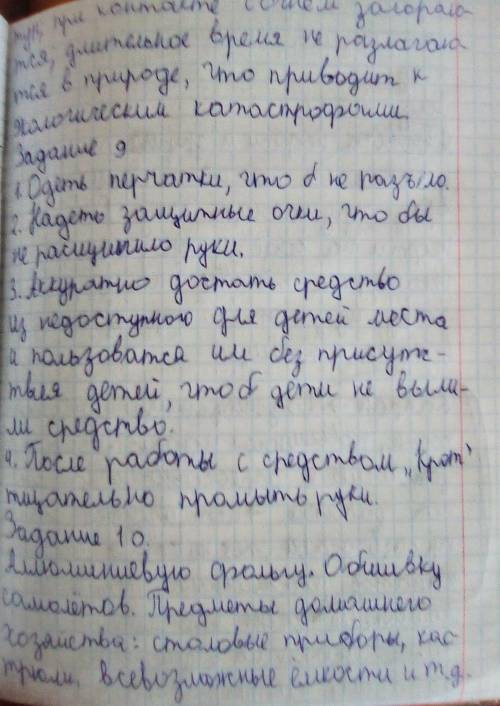 тур, при контакте с огнём загораю
тся, длительное время не разлагаю
тся в природе, что приводит к
экологическим катастрофами.
Задание 9
1. Одеть перчатки, что б не разъло.
2. Надеть защитные очки, что бы
не расщипило руки.
3. Аккуратно достать средство
из недоступного для детей места
и пользоватся им без присутс-
твия детей, что б дети не выли-
ли средство.
4. После работы с средством „Крот"
тщательно промыть руки.
Задание 10.
Алюминиевую фольгу. Обшивку
самолётов. Предметы домашнего
хозяйства: столовые приборы, кас-
трюли, всевозможные ёмкости и т.д.